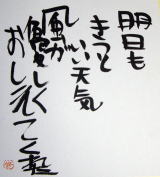 明日も
きっと
いい天気
風が
優しく
おしえてくれた